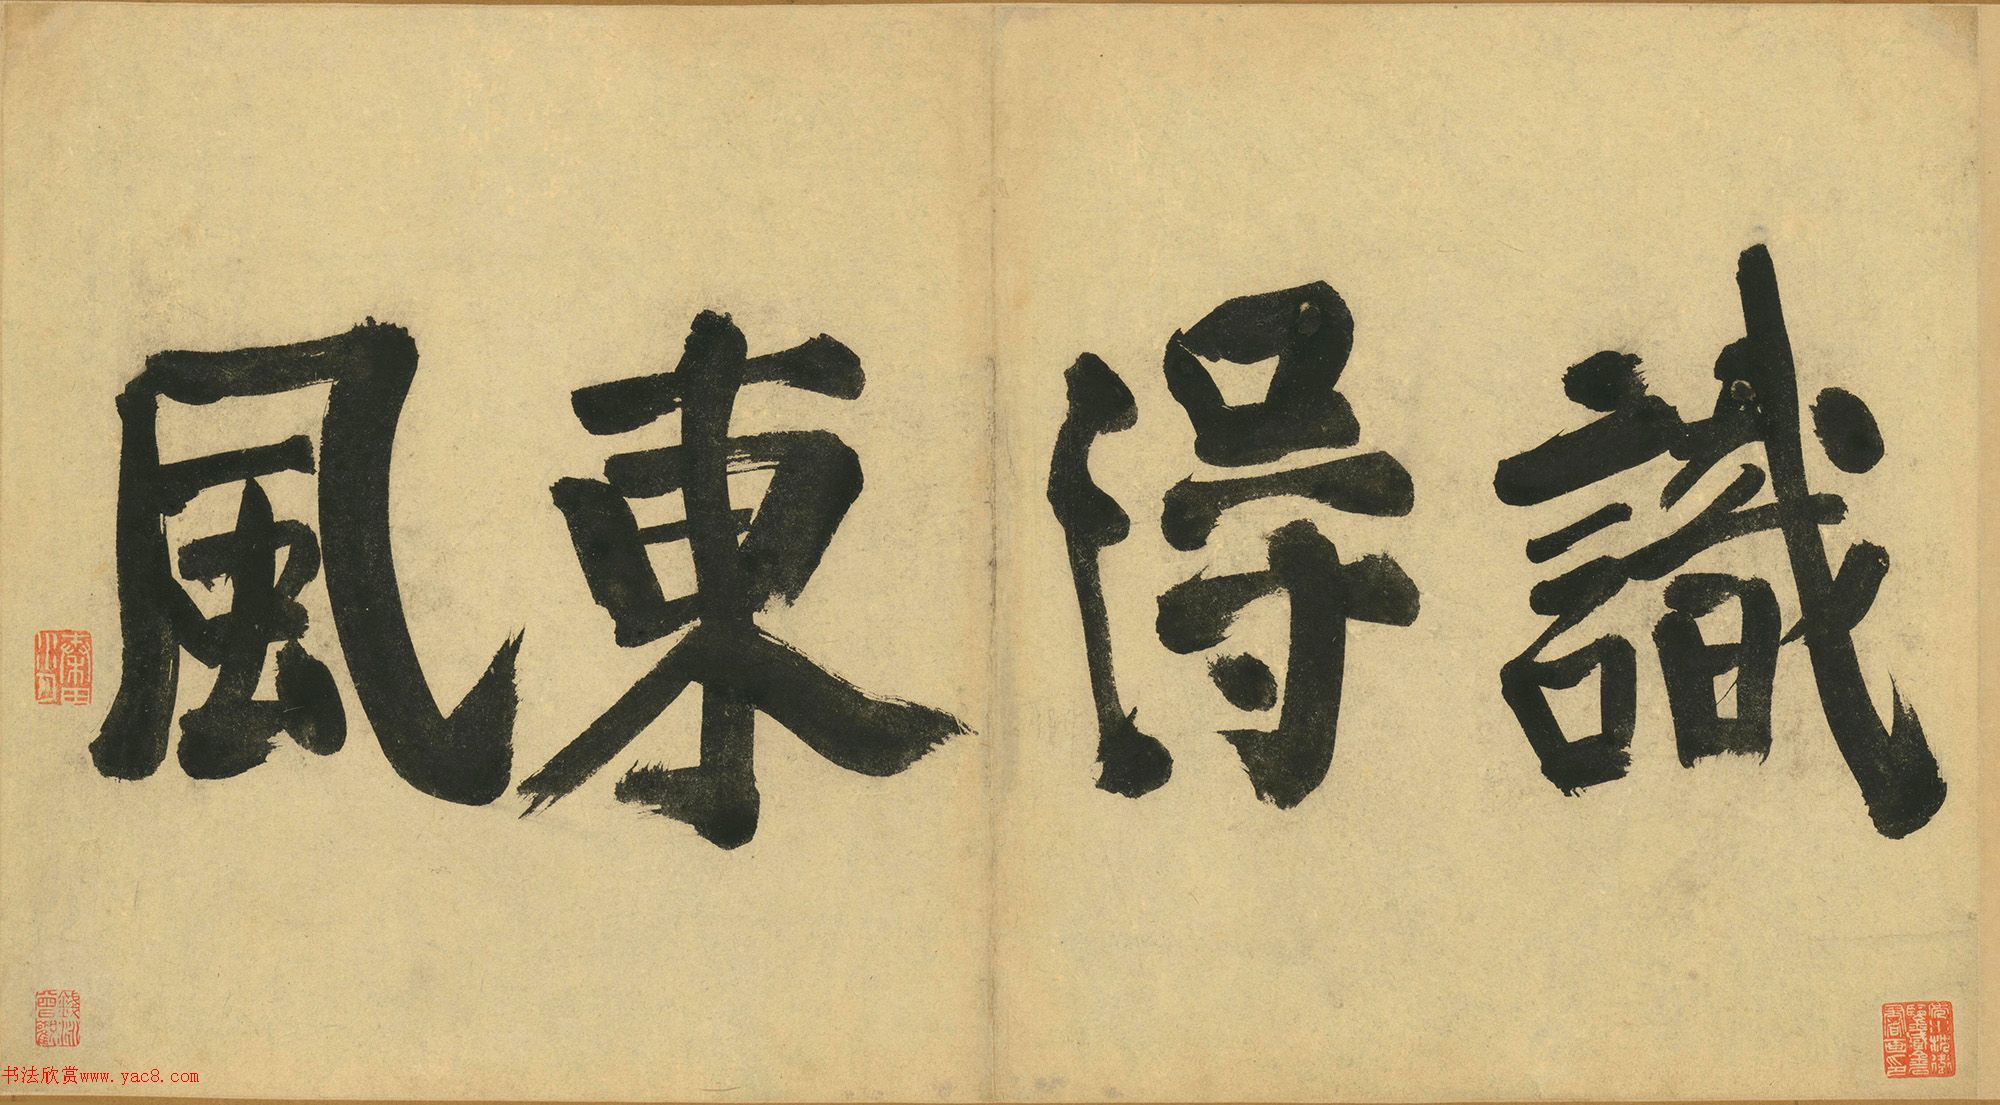 識得東風
书法欣赏www.yac8.com